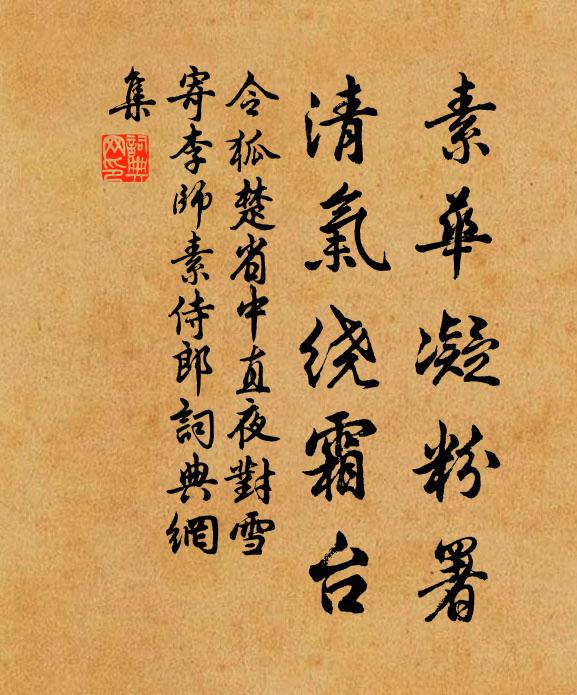 素華凝粉署
清氣绕霜台
令狐楚省中直夜對雪
寄李師素侍郎詞典網
集
詞典
网印